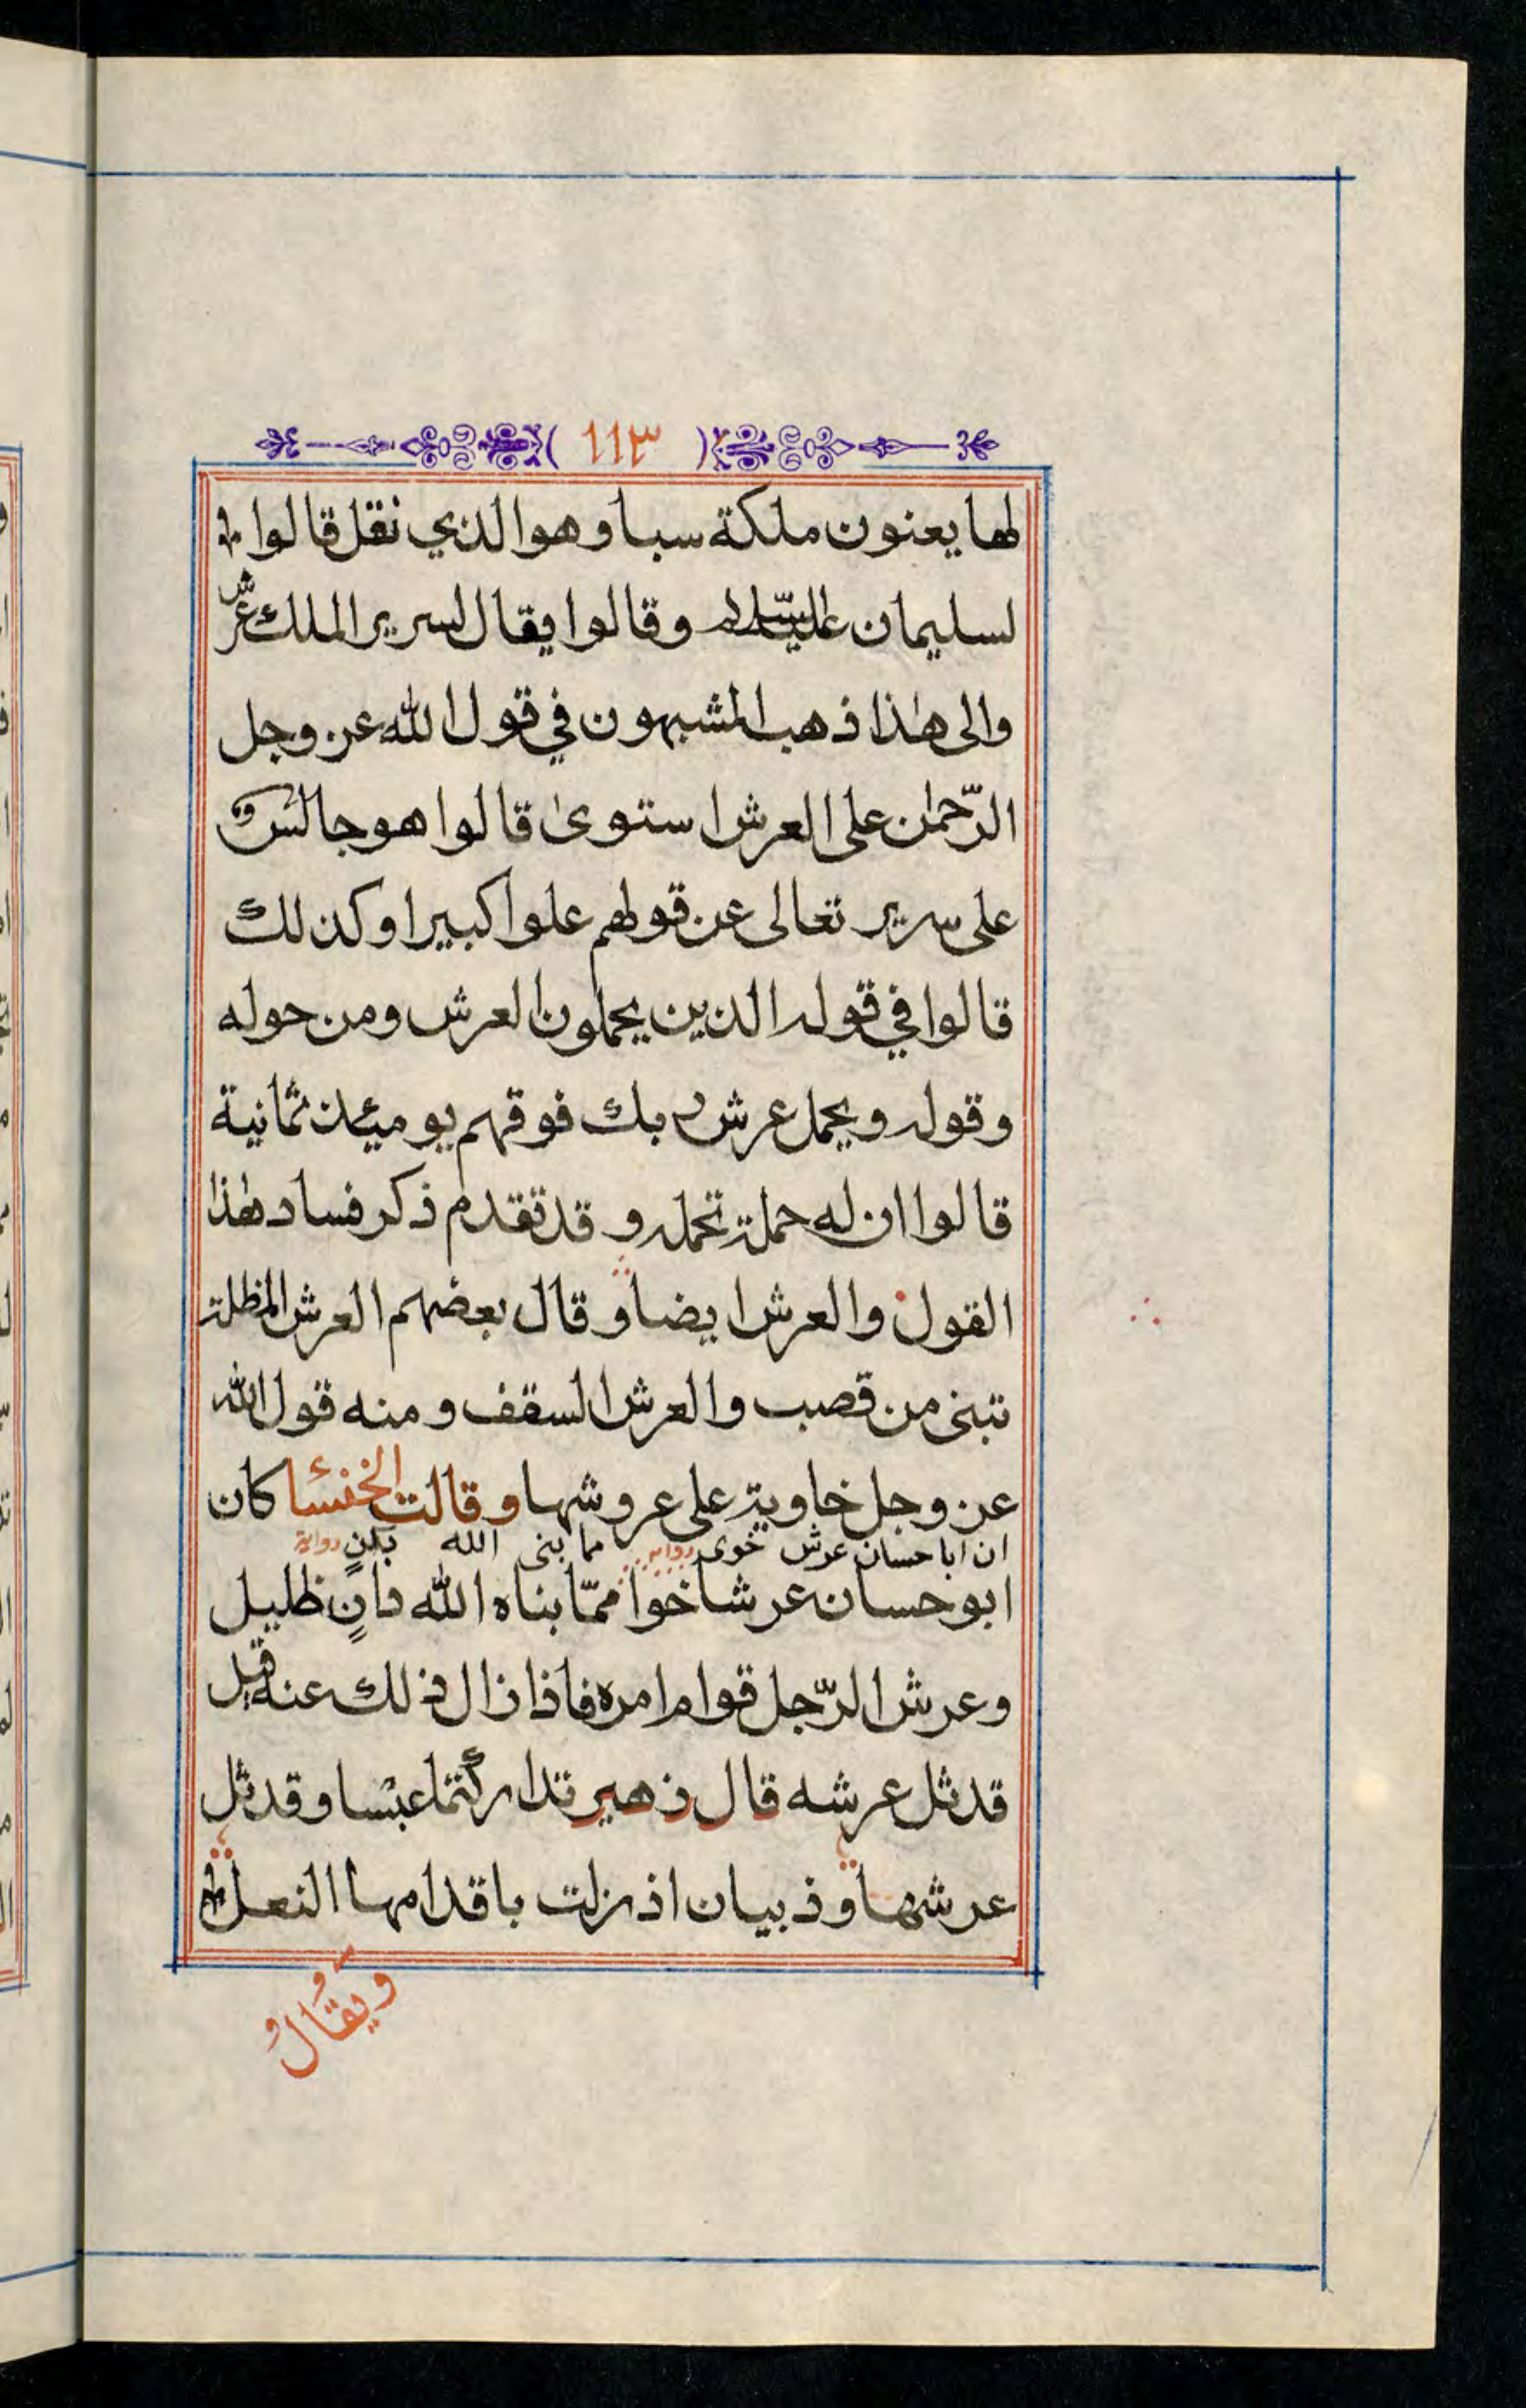 ( ١١٣ )
لها يعنون ملكة سبا وهو الذي نقل قالوا
لسليمان عليه السلام وقالوا يقال لسرير الملك عرش
والى هذا ذهب المشبهون في قول الله عز وجل
الرّحمٰن على العرش استوىٰ قالوا هو جالس
على سرير تعالى عن قولهم علوا كبيرا وكذلك
قالوا في قوله الذين يحملون العرش ومن حوله
وقوله ويحمل عرش ربك فوقهم يومئذ ثمانية
قالوا ان له حملة تحمله وقد تقدم ذكر فساد هٰذا
القول والعرش ايضا وقال بعضهم العرش المظلة
تبنى من قصب والعرش السقف ومنه قول الله
عز وجل خاوية على عروشها وقالت الخنسا كان
ان ابا حسان عرش خوى رواية مما بنى الله بدنٍ رواية
ابو حسان عرشا خوا ممّا بناه الله دانٍ ظليل
وعرش الرّجل قوام امره فاذا زال ذلك عنه قيل
قد ثل عرشه قال زهير تداركتما عبسا وقد ثل
عرشها وذبيان اذ زلت باقدامها النعل
ويقال